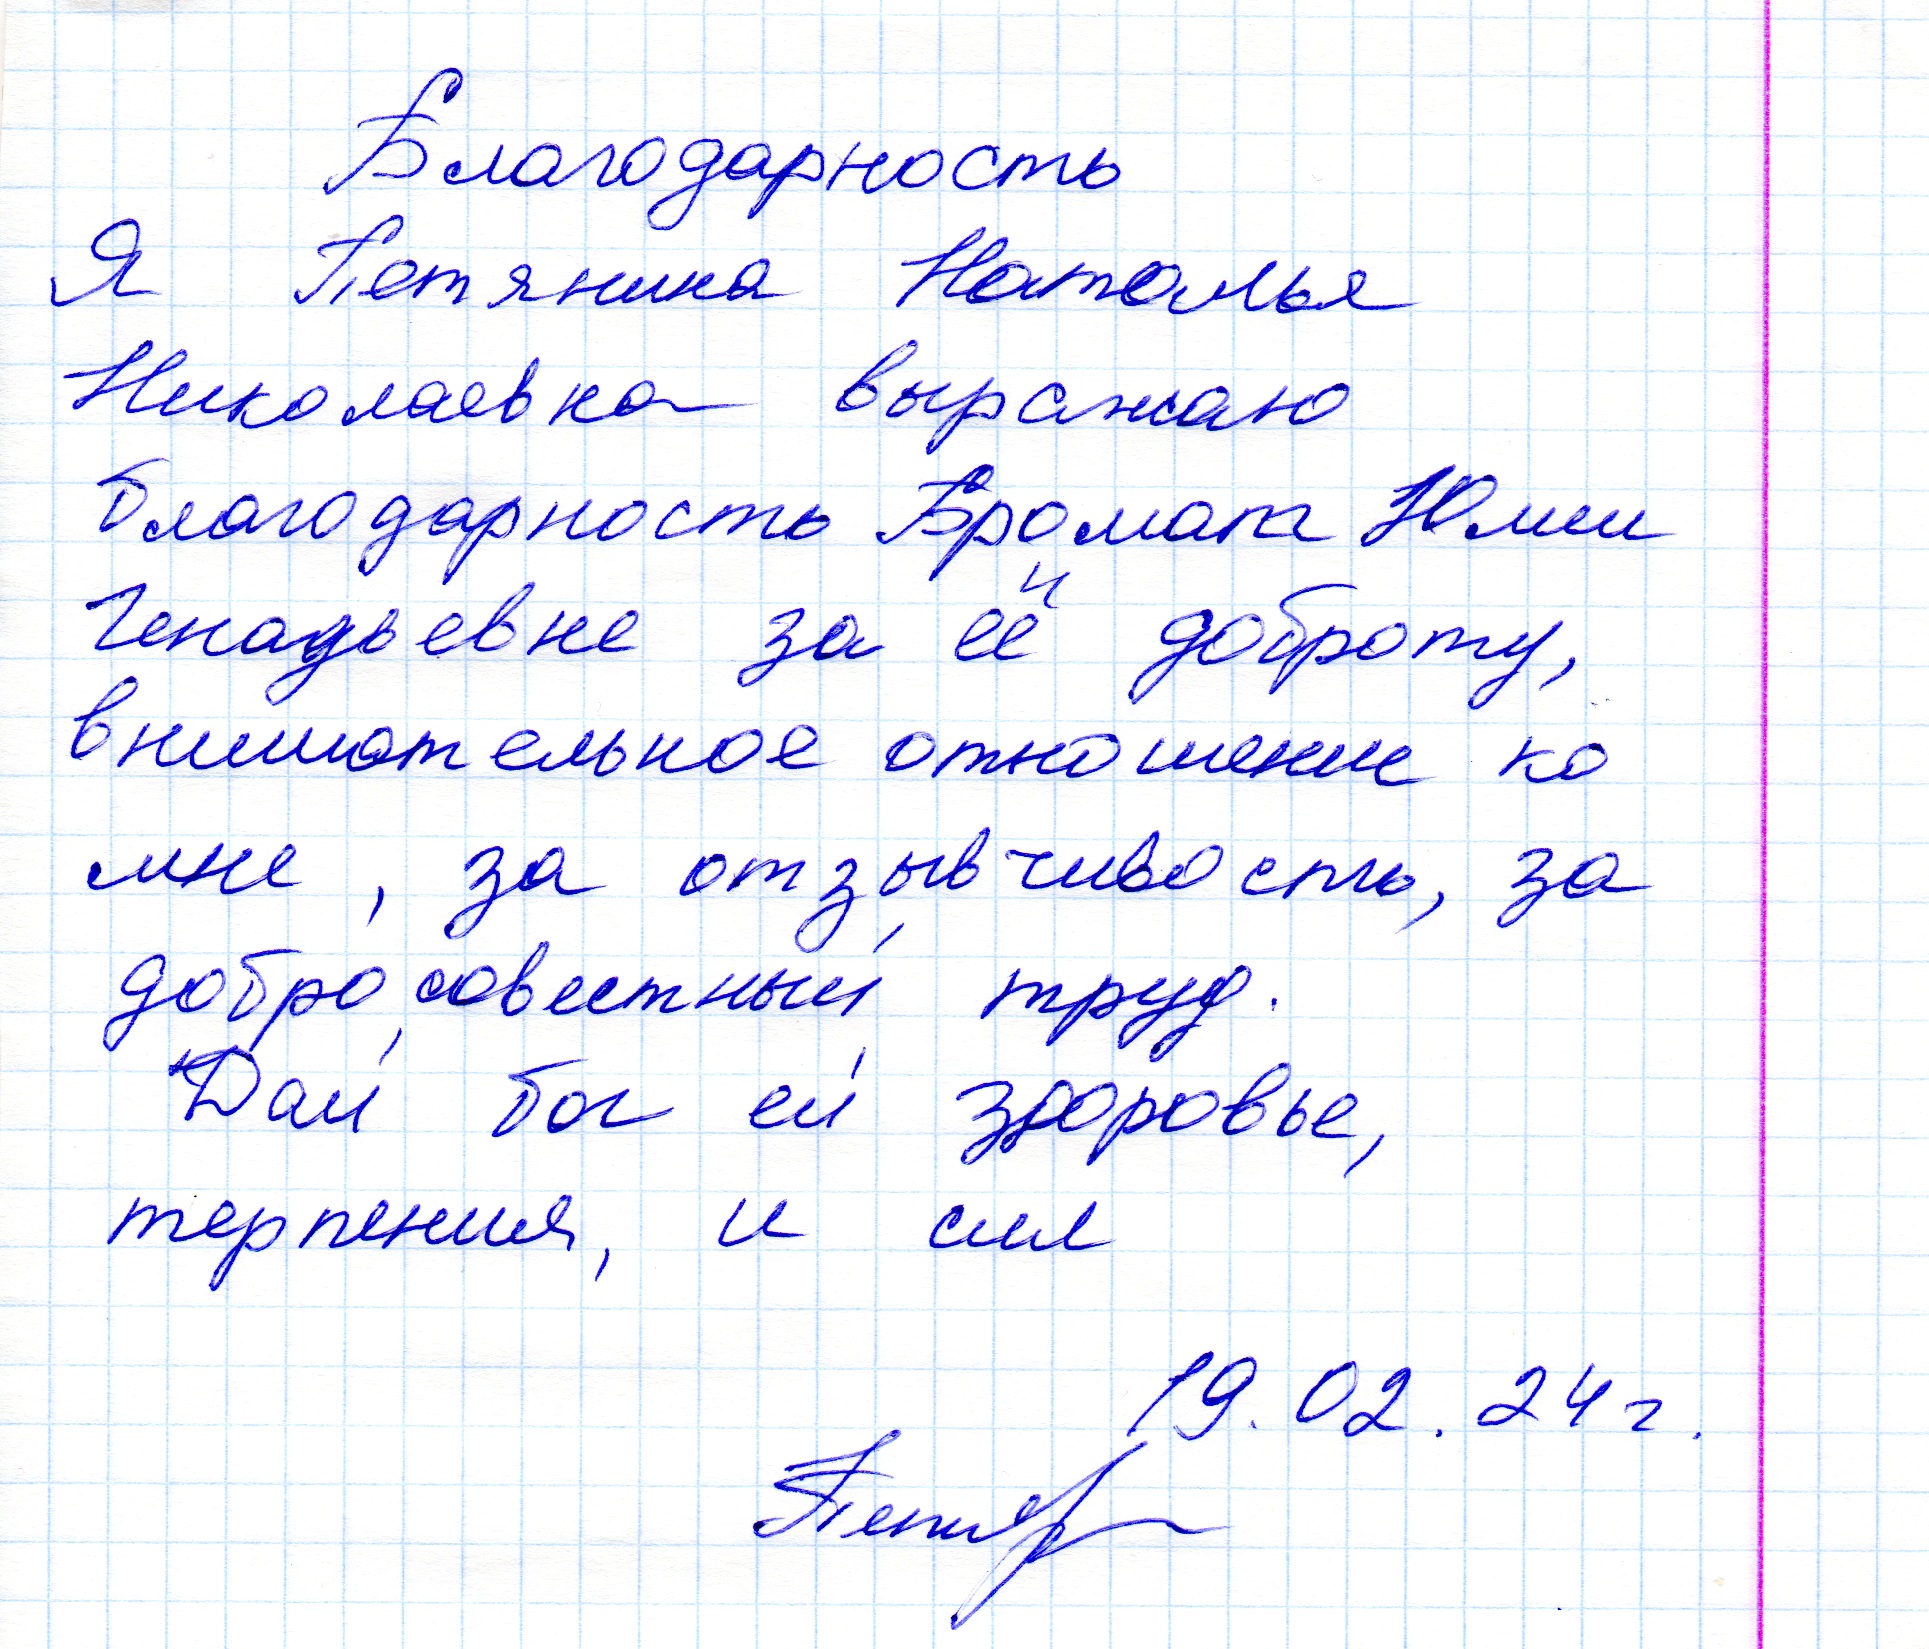 Благодарность
Я Петянина Наталья
Николаевна выражаю
благодарность Юлии
Генадьевне за её доброту,
внимательное отношение ко
мне, за отзывчивость, за
добросовестный труд.
Дай бог ей здоровье,
терпения, и сил
19.02.24г.